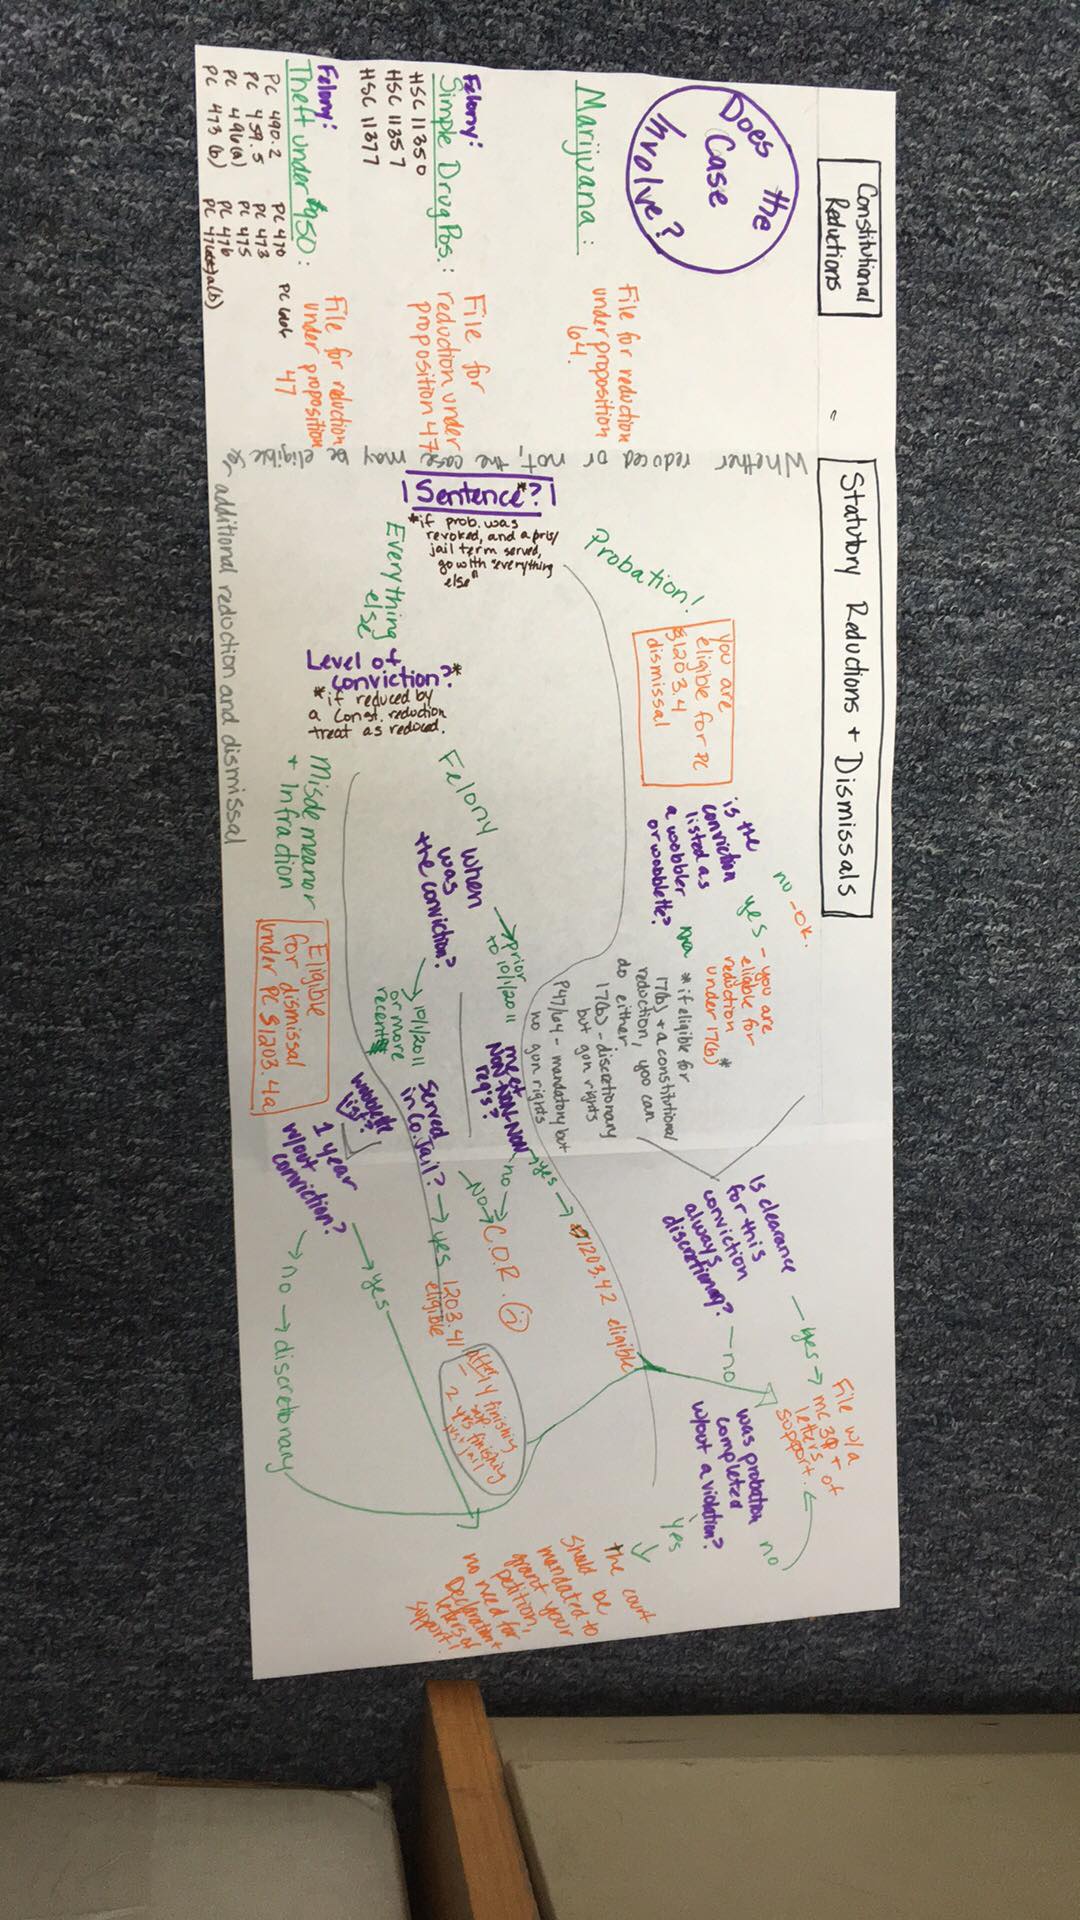 Constitutional
Reductions
Does the
Case
Involve?
Marijuana:
File for reduction
under proposition
64.
Felony:
Simple Drug Pos.:
HSC 11350
HSC 11357
HSC 11377
File for
reduction under
proposition 47
Felony:
Theft under $950:
PC 490.2
PC 459.5
PC 496(a)
PC 473(b)
PC 470
PC 473
PC 475
PC 476
File for reduction
under proposition
47
Whether reduced or not, the case may be eligible for
additional reduction and dismissal
Statutory Reductions + Dismissals
Sentence*?
*if prob. was
revoked, and a pris/
jail term served,
go with "everything
else"
Probation!
you are
eligible for PC
§1203.4
dismissal
is the
conviction
listed as
a wobbler
or wobblette?
no - OK.
yes - you are
eligible for
reduction
under 17(b) *
* if eligible for
17(b) + a constitutional
reduction, you can
do either
17(b) - discretionary
but gun rights
P47/64 - mandatory but
no gun rights
Is clearance
for this
conviction
always
discretionary?
yes →
File w/a
mc 30 +
letters of
support.
no
was probation
completed
w/out a violation?
no
yes
the court
should be
mandated to
grant your
petition,
no need for
Declaration +
letters of
support!
Everything
else
Level of
conviction?*
*if reduced by
a Const. reduction
treat as reduced.
Felony
when
was
the conviction?
→ prior
to 10/1/2011
met
Non-Non-Non
req's?
→ yes → §1203.42 eligible
no → C.O.R. :)
→ 10/1/2011
or more
recent
Served
in Co. Jail?
No →
→ yes 1203.41
eligible
1 yr finishing
sup
2 yrs finishing
just jail
Misdemeanor
+ Infraction
Eligible
for dismissal
under PC §1203.4a
wobblette
list?
1 year
w/out
conviction?
→ yes
→ no → discretionary